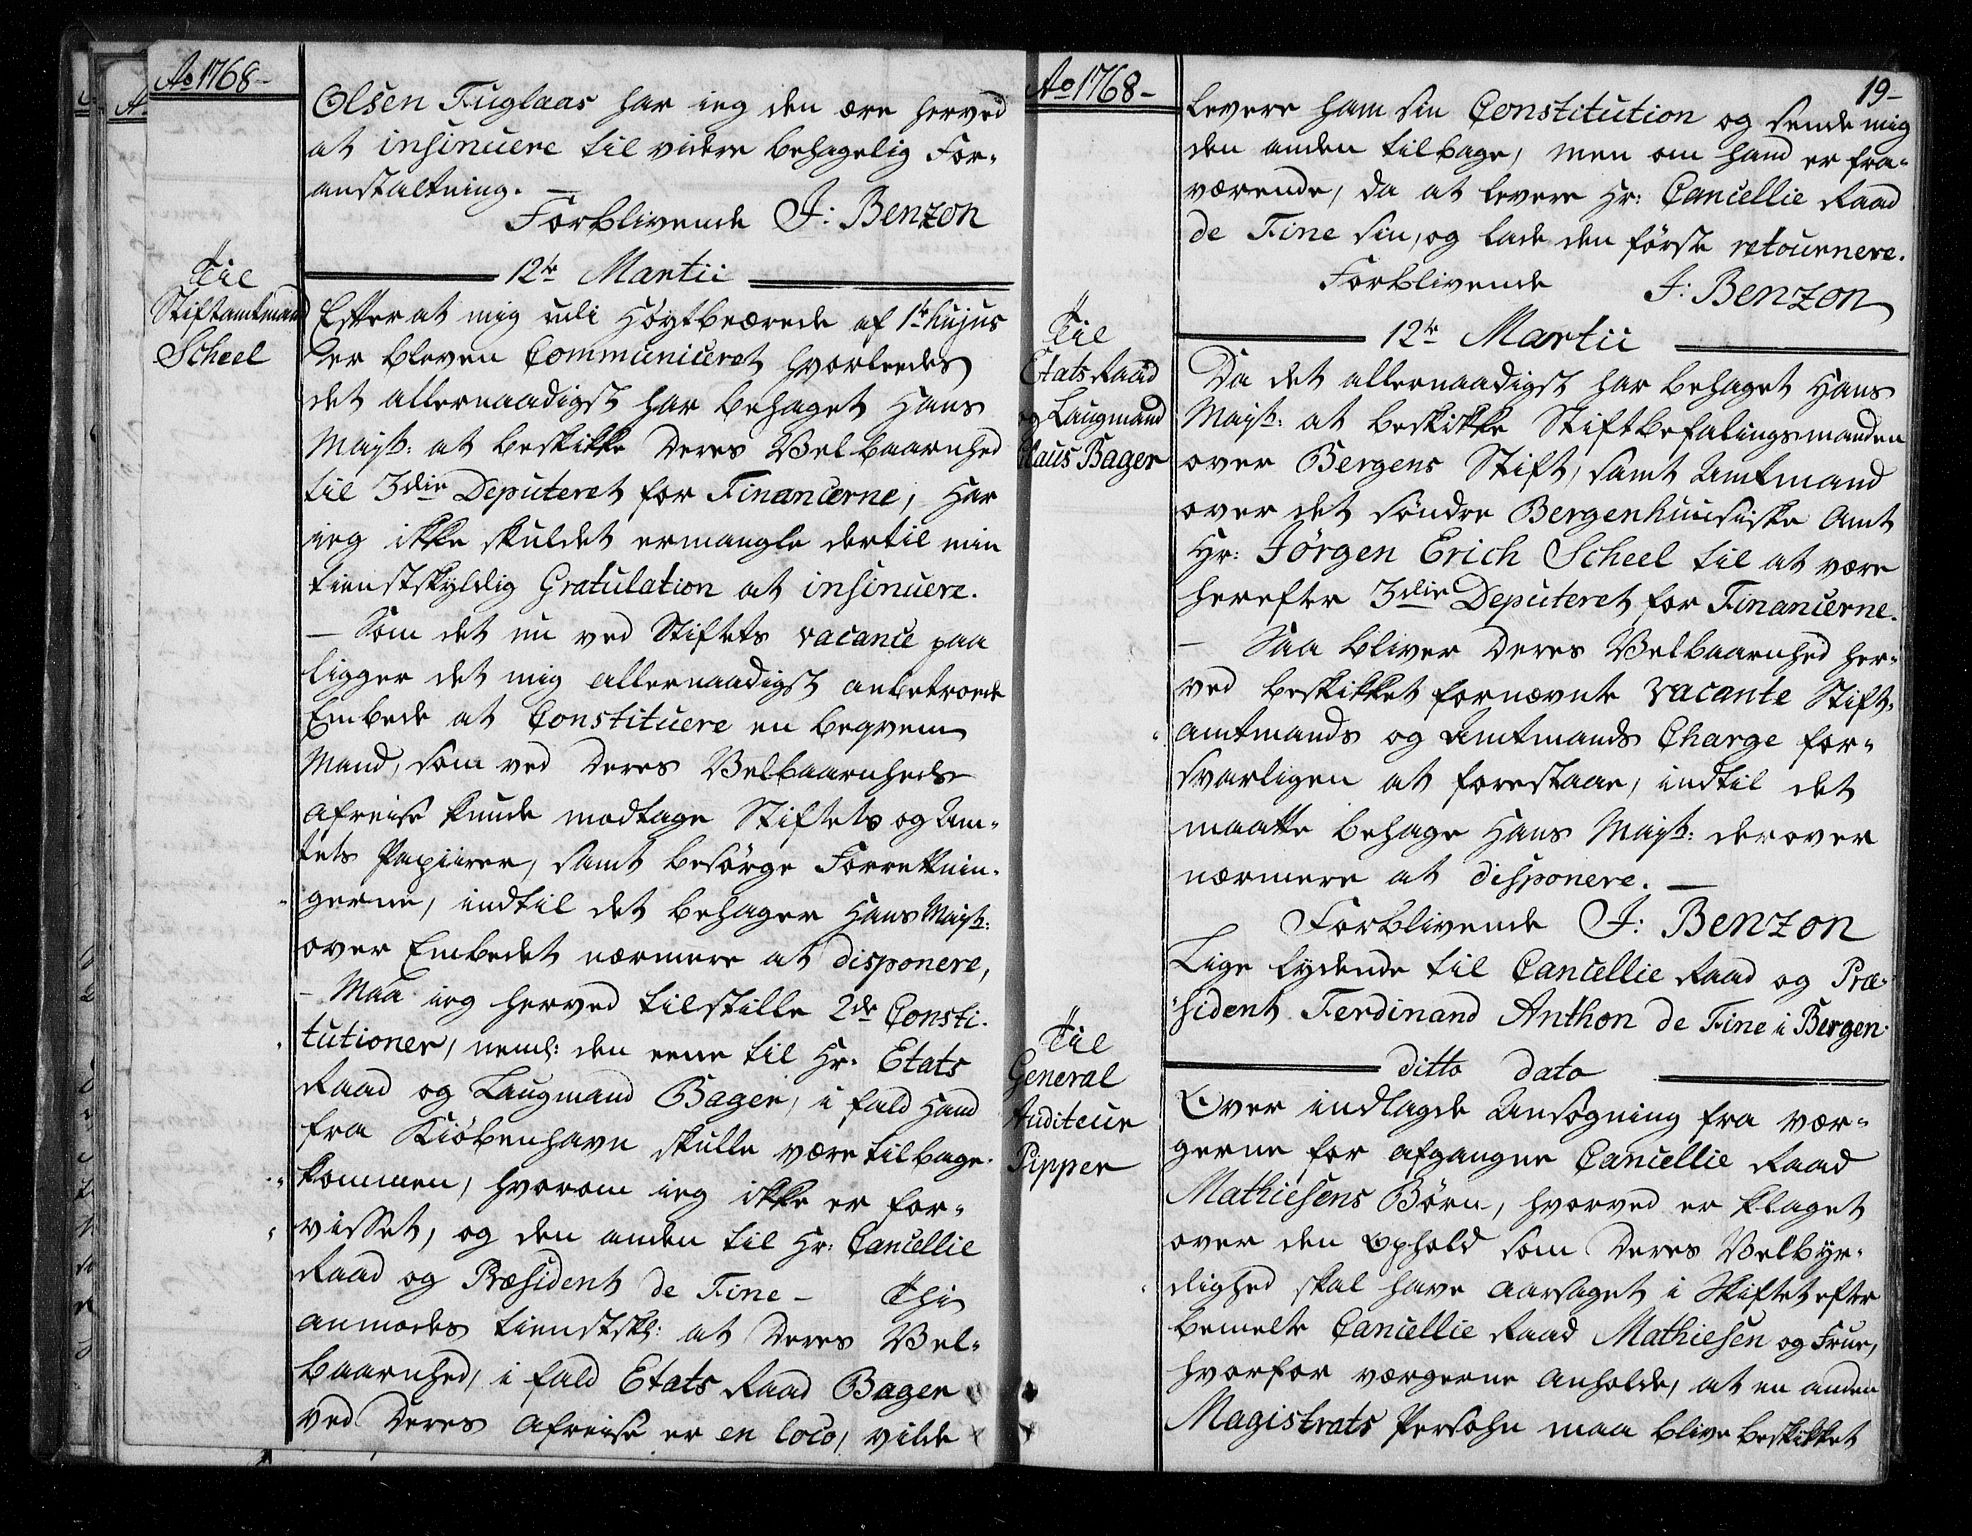 Ao 1768-
Olsen Fuglaas har ieg den ære herved
at insinuere til videre behagelig For-
anstaltning. —
Forblivende J: Benzon
12te Martii
Til
Stiftamtmand
Scheel
Efter at mig udi Høytbeærede af 1te hujus
er bleven Communiceret hvorleedes
det allernaadigst har behaget Hans
Mayst: at beskikke Deres Velbaarnhed
til 3die Deputeret for Financerne, Har
ieg ikke skuldet ermangle dertil min
tienstskyldig Gratulation at insinuere.
— Som det nu ved Stiftets vacance paa
ligger det mig allernaadigst anbetroede
Embede at Constituere en beqvem
Mand, som ved Deres Velbaarnheds
afreise kunde modtage Stiftets og Am-
tets Papiirer, samt besørge Forretnin-
gerne, indtil det behager Hans Mayst:
over Embedet nærmere at disponere,
— Maa ieg herved tilstille 2de Consti-
tutioner, neml: den eene til Hr: Etats
Raad og Laugmand Bager, i fald Hand
fra Kiøbenhavn skulle være tilbage-
kommen, hvorom ieg ikke er for-
visset, og den anden til Hr: Cancellie
Raad og Præsident de Fine — Thi
anmodes tienstskl: at Deres Vel-
baarnhed, i fald Etats Raad Bager
ved Deres Afreise er en loco, vilde
Ao 1768-
19-
levere ham sin Constitution og sende mig
den anden tilbage, men om hand er fra-
værende, da at levere Hr: Cancellie Raad
de Fine sin, og lade den første retournere.
Forblivende J: Benzon
12te Martii
Til
Etats Raad
og Laugmand
Claus Bager
Da det allernaadigst har behaget Hans
Mayst: at beskikke Stiftbefalingsmanden
over Bergens Stift, samt Amtmand
over det søndre Bergenhuusiske Amt
Hr: Jörgen Erich Scheel til at være
herefter 3die Deputeret for Financerne.
— Saa bliver Deres Velbaarnhed her-
ved beskikket fornævnte vacante Stift-
amtmands og Amtmands Charge for-
svarligen at forestaae, indtil det
maatte behage Hans Mayst: derover
nærmere at disponere. —
Forblivende J: Benzon
Lige lydende til Cancellie Raad og Præ-
sident Ferdinand Anthon de Fine i Bergen.
ditto dato
Til
General
Auditeur
Pipper
Over indlagde Ansøgning fra vær-
gerne for afgangne Cancellie Raad
Mathiesens Børn, hvorved er klaget
over den Ophold som Deres Velbyr-
dighed skal have aarsaget i Skiftet efter
bemelte Cancellie Raad Mathiesen og Frue,
hvorfor værgerne anholde, at en anden
Magistrats Persohn maa blive beskikket